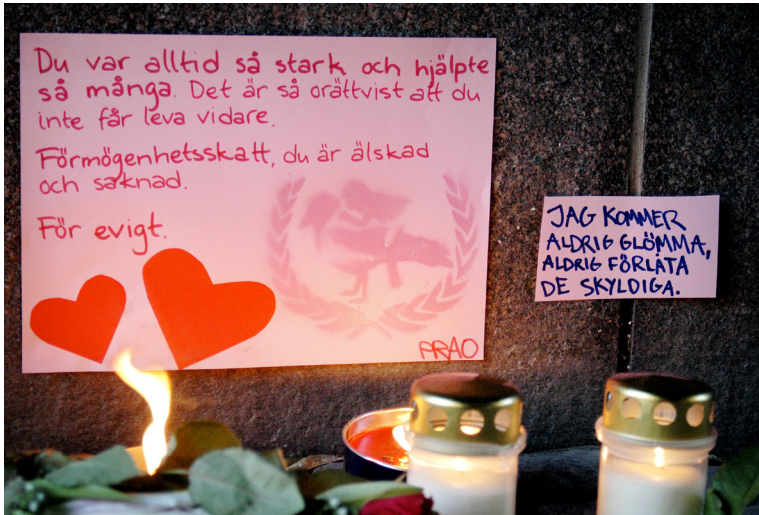 Du var alltid så stark och hjälpte
så många. Det är så orättvist att du
inte får leva vidare.
Förmögenhetsskatt, du är älskad
och saknad.
För evigt.
PRAO
JAG KOMMER
ALDRIG GLÖMMA,
ALDRIG FÖRLÅTA
DE SKYLDIGA.